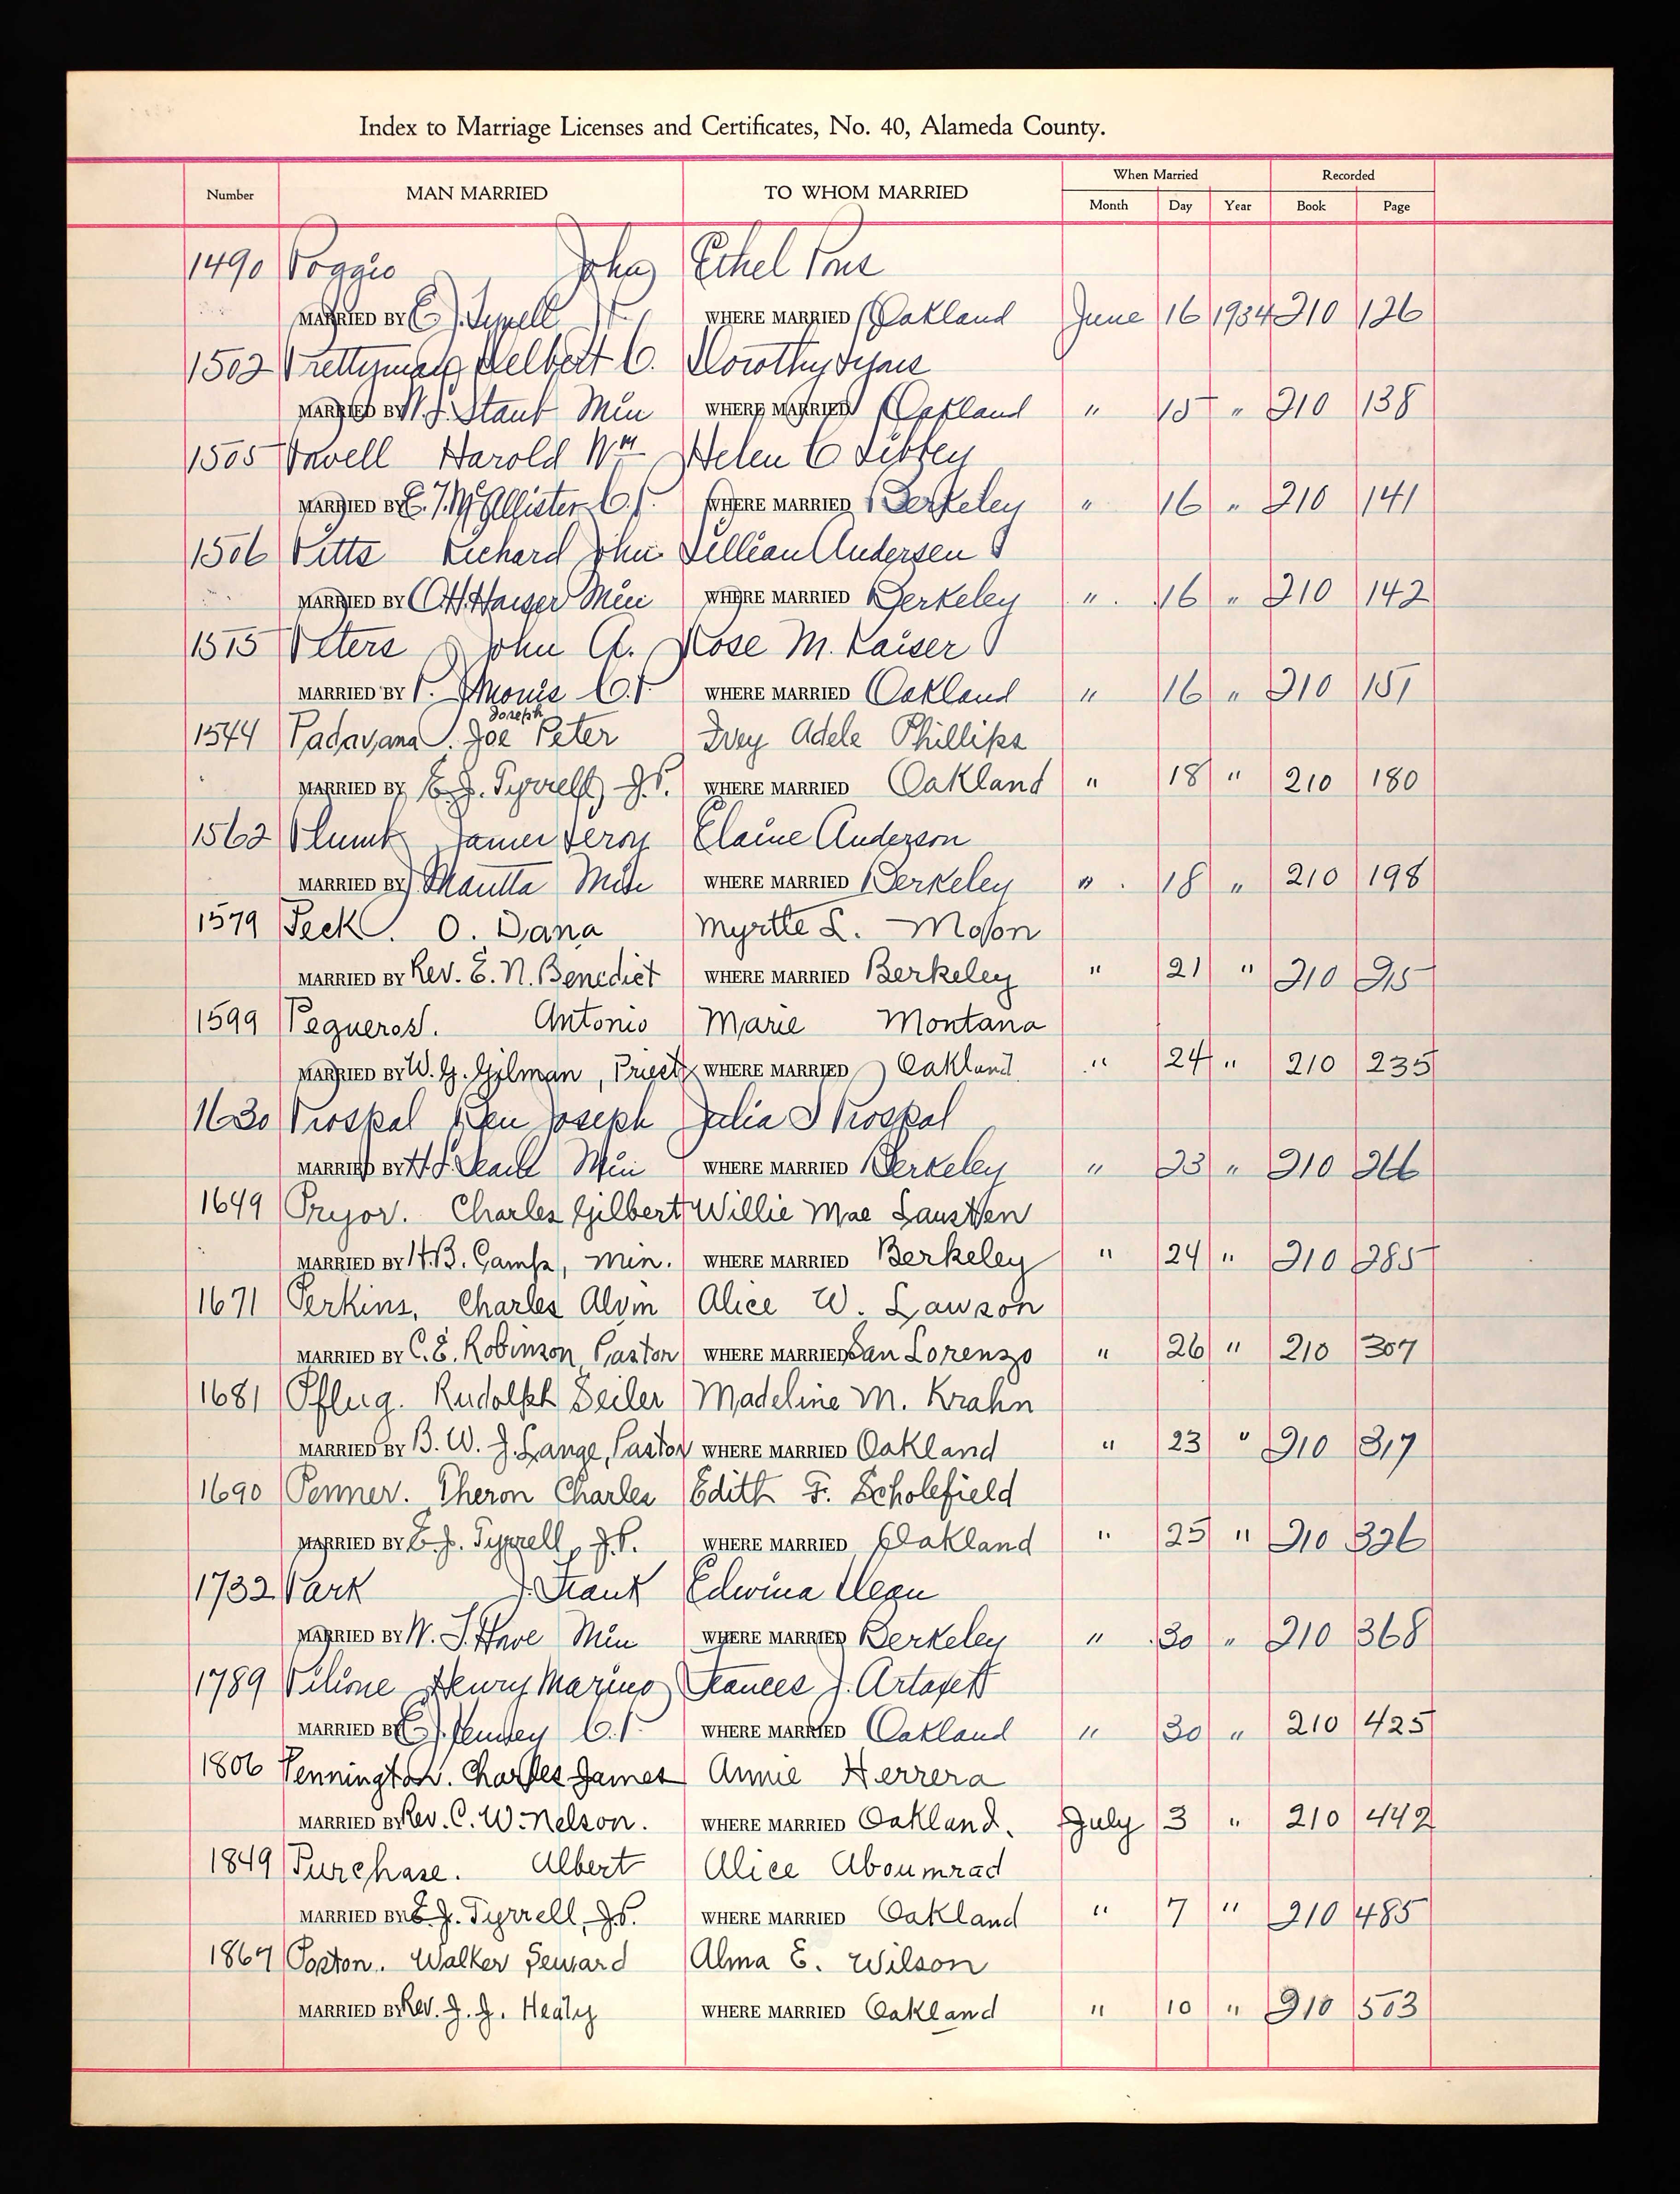 Index to Marriage Licenses and Certificates, No. 40, Alameda County.
Number MAN MARRIED TO WHOM MARRIED When Married Recorded
Month Day Year Book Page
1490 Poggio John Ethel
MARRIED BY E. J. Tyrrell J.P. WHERE MARRIED Oakland June 16 1934 210 136
1502 Prettyman Delbert C. Dorothy
MARRIED BY Staub Min WHERE MARRIED Oakland " 15 " 210 138
1505 Powell Harold Wm Helen C Libbey
MARRIED BY E. J. McAllister C.P. WHERE MARRIED Berkeley " 16 " 210 141
1506 Pitts Richard John Lillian Andersen
MARRIED BY Min WHERE MARRIED Berkeley " 16 " 210 142
1515 Peters John A. Rose M. Kaiser
MARRIED BY C.P. WHERE MARRIED Oakland " 16 " 210 151
Joseph
1544 Padavana. Joe Peter Ivey Adele Phillips
MARRIED BY E. J. Tyrrell, J.P. WHERE MARRIED Oakland " 18 " 210 180
1562 Plumb James Leroy Elaine Anderson
MARRIED BY Min WHERE MARRIED Berkeley " 18 " 210 198
1579 Peck. O. Dana Myrtle L. Moson
MARRIED BY Rev. E. N. Benedict WHERE MARRIED Berkeley " 21 " 210 215
1599 Pegueros. Antonio Marie Montana
MARRIED BY W. G. Gilman, Priest WHERE MARRIED Oakland " 24 " 210 235
1630 Proskal Ben Joseph Julia S Proskal
MARRIED BY Min WHERE MARRIED Berkeley " 23 " 210 266
1649 Pryor. Charles Gilbert Willie Mae
MARRIED BY H.B. Camp, Min. WHERE MARRIED Berkeley " 24 " 210 285
1671 Perkins, Charles Alvin Alice W. Lawson
MARRIED BY C. E. Robinson, Pastor WHERE MARRIED San Lorenzo " 26 " 210 307
1681 Pflug. Rudolph Seiler Madeline M. Krahn
MARRIED BY B. W. J. Lange, Pastor WHERE MARRIED Oakland " 23 " 210 317
1690 Penner. Theron Charles Edith F. Scholefield
MARRIED BY E. J. Tyrrell, J.P. WHERE MARRIED Oakland " 25 " 210 326
1732 Park J. Frank Edwina Dean
MARRIED BY W. Min WHERE MARRIED Berkeley " 30 " 210 368
1789 Henry Marino Frances J.
MARRIED BY C.P. WHERE MARRIED Oakland " 30 " 210 425
1806 Pennington. Charles James Annie Herrera
MARRIED BY Rev. C. W. Nelson. WHERE MARRIED Oakland. July 3 " 210 442
1849 Purchase. Albert Alice Aboumrad
MARRIED BY E. J. Tyrrell, J.P. WHERE MARRIED Oakland " 7 " 210 485
1867 Poston. Walker Seward Alma E. Wilson
MARRIED BY Rev. J. J. Healy WHERE MARRIED Oakland " 10 " 210 503